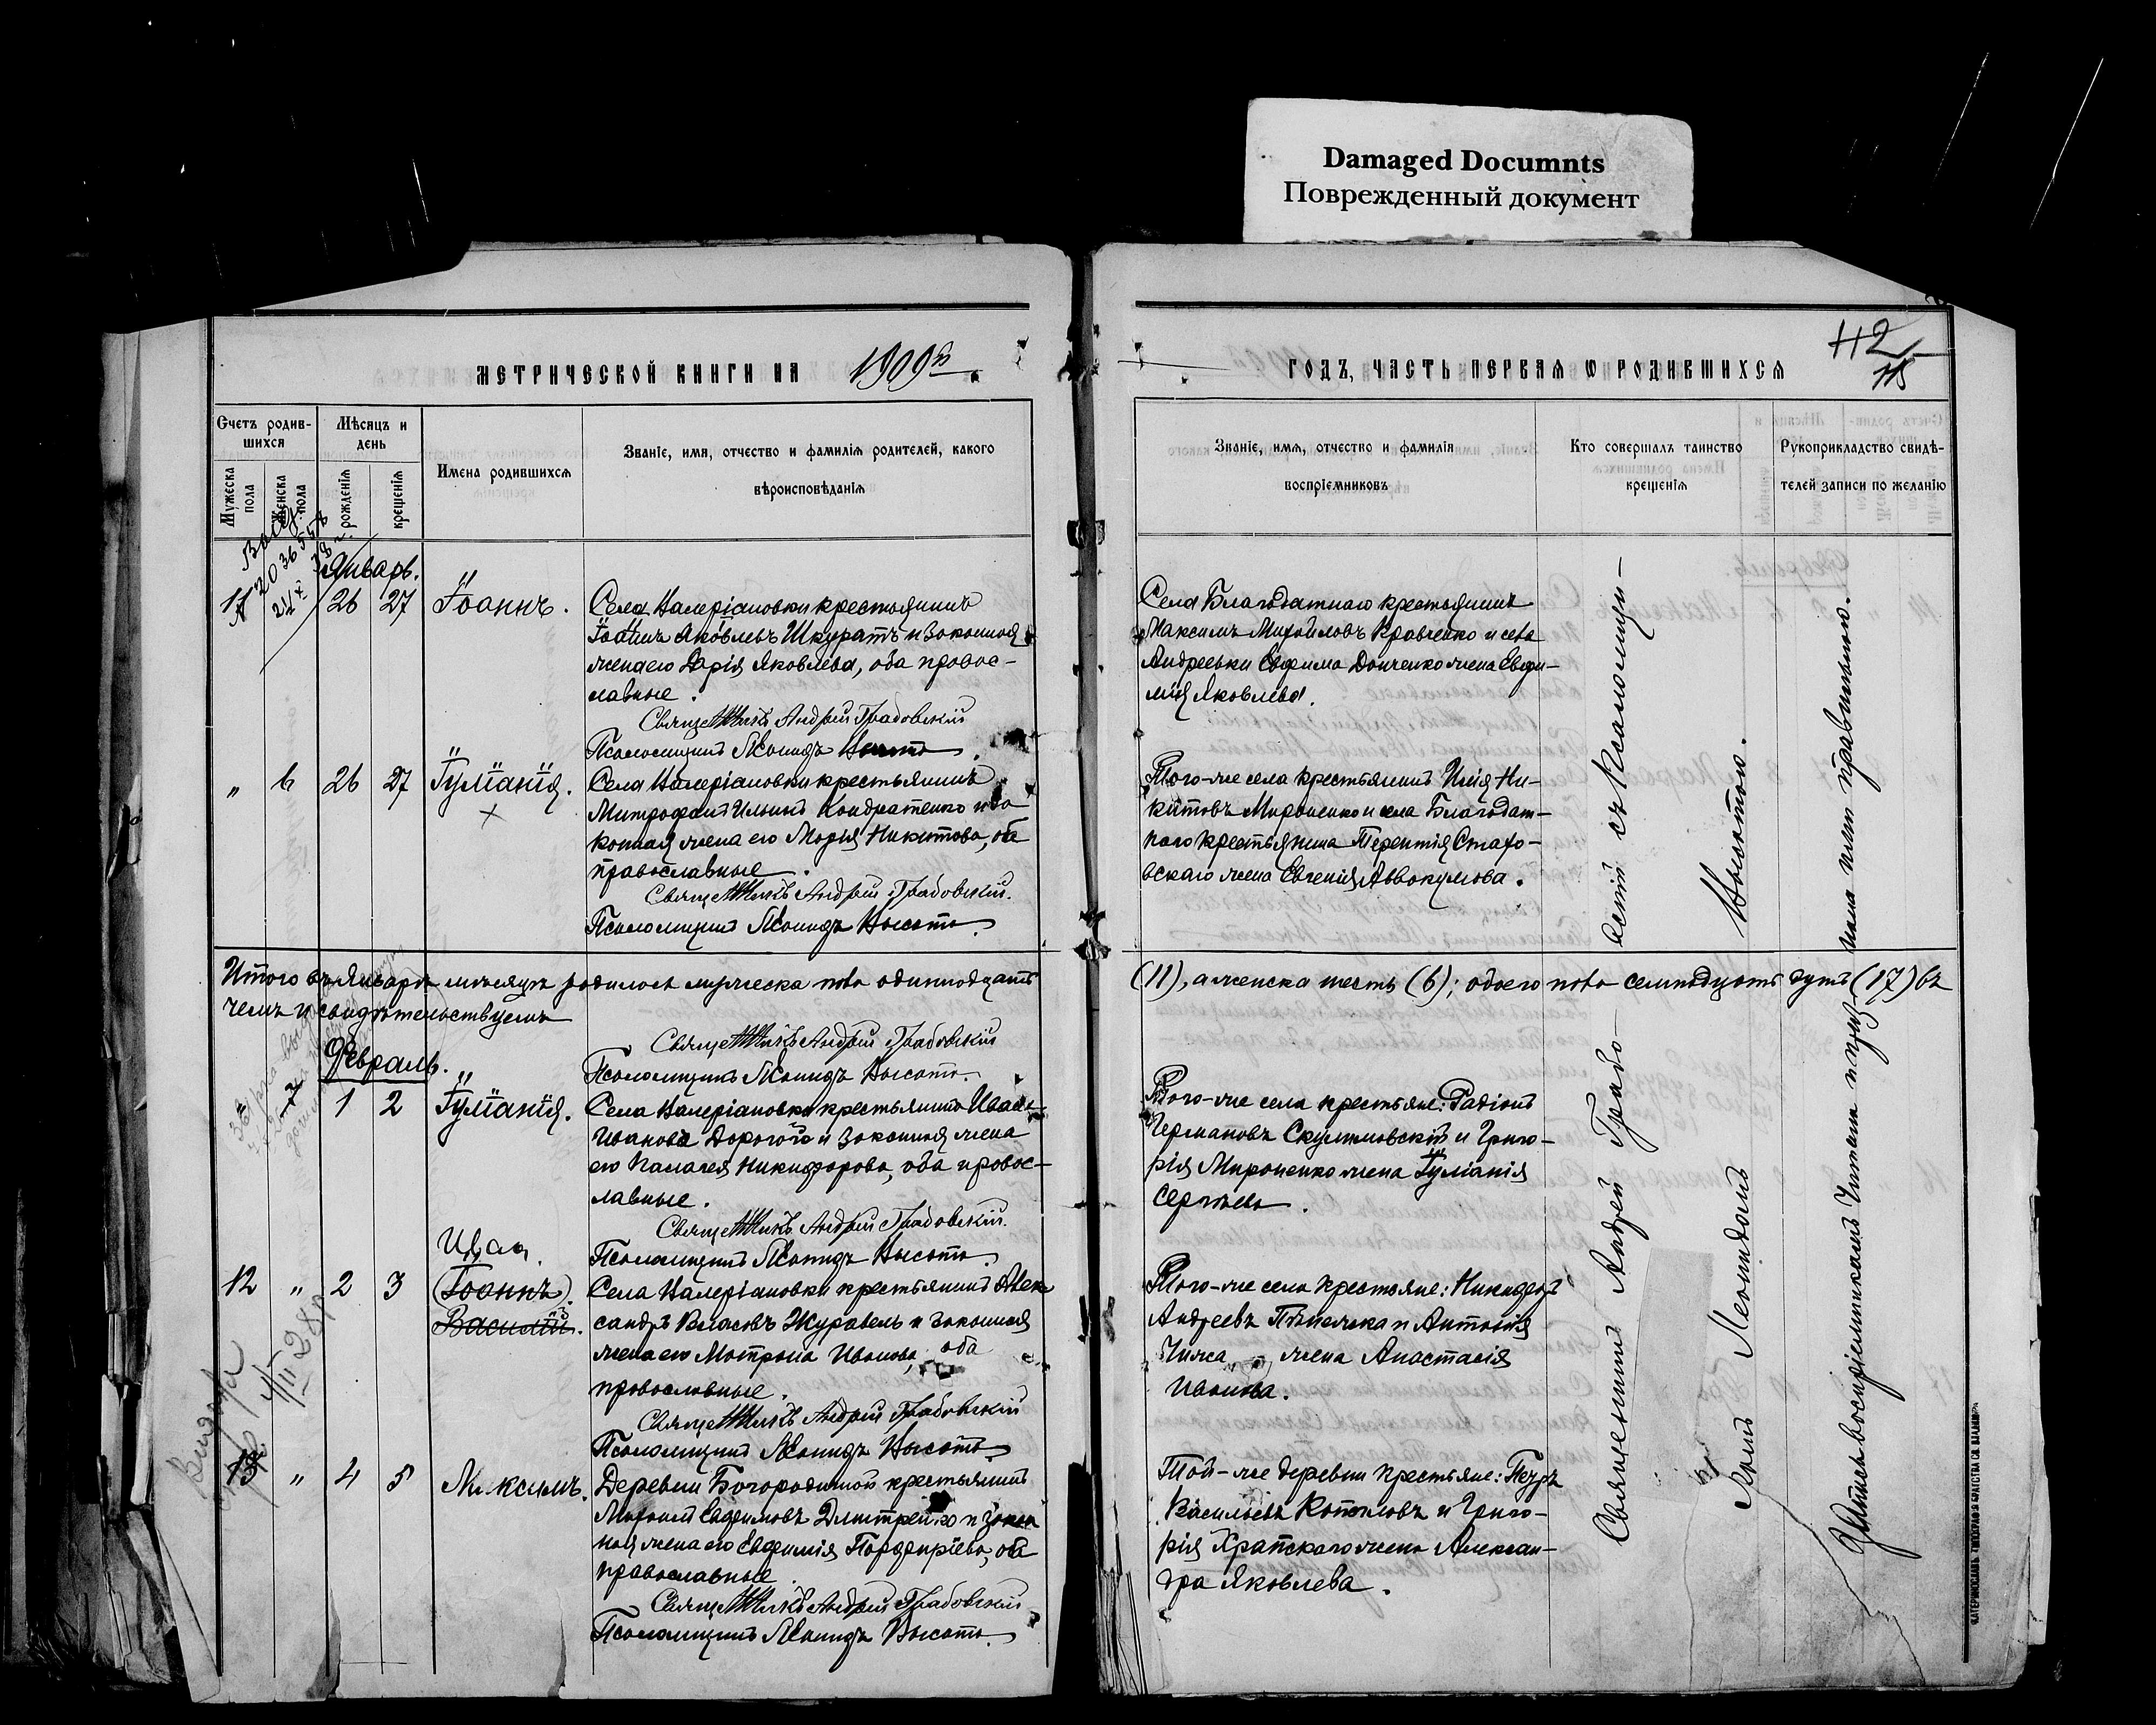 Damaged Documnts
Поврежденный документ
МЕТРИЧЕСКОЙ КНИГИ НА 1909й
ГОДЪ, ЧАСТЬ ПЕРВАЯ О РОДИВШИХСЯ
112
115
Счетъ родив-
шихся
Мѣсяцъ и
день
Мужеска
пола
Женска
пола
рожденія
крещенія
Имена родившихся
Званіе, имя, отчество и фамилія родителей, какого
вѣроисповѣданія
Званіе, имя, отчество и фамилія
воспріемниковъ
Кто совершалъ таинство
крещенія
Рукоприкладство свидѣ-
телей записи по желанію
Январь.
11 26 27 Іоаннъ.
Села Валеріановки крестьянинъ
Іоаннъ Яковлевъ Шкуратъ и законная
жена его Дарія Яковлева, оба правос-
лавные.
Священникъ Андрей Грабовскій
Псаломщикъ Леонидъ Высота
Села Благодатнаго крестьянинъ
Максимъ Михайловъ Кравченко и села
Андреевки Евфима Донченко жена Евфи-
мія Яковлева.
" 6 26 27 Іуліанія.
Села Валеріановки крестьянинъ
Митрофанъ Ильинъ Кондратенко и за-
конная жена его Марія Никитова, оба
православные.
Священникъ Андрей Грабовскій.
Псаломщикъ Леонидъ Высота.
Того-же села крестьянинъ Илія Ни-
китовъ Мироненко и села Благодат-
наго крестьянина Терентія Стахо-
вскаго жена Евгенія Аввакумова.
Итого въ Январѣ мѣсяцѣ родилось мужеска пола одиннадцать
(11), а женска шесть (6); обоего пола семнадцать душъ (17) въ
чемъ и свидѣтельствуемъ
Священникъ Андрей Грабовскій
Псаломщикъ Леонидъ Высота.
Февраль.
1 2 Іуліанія.
Села Валеріановки крестьянинъ Иванъ
Ивановъ Дорогой и законная жена
его Палагея Никифорова, оба правос-
лавные.
Священникъ Андрей Грабовскій.
Псаломщикъ Леонидъ Высота.
Того-же села крестьяне: Радіонъ
Германовъ Скулимовскій и Григо-
рія Мироненко жена Іуліанія
Сергѣева.
Иван.
12 " 2 3 (Іоаннъ).
Василій.
Села Валеріановки крестьянинъ Алек-
сандръ Власовъ Журавель и законная
жена его Матрона Иванова, оба
православные.
Священникъ Андрей Грабовскій
Псаломщикъ Леонидъ Высота
Того-же села крестьяне: Никифоръ
Андреевъ и Антонія
жена Анастасія
Иванова.
13 " 4 5 Максимъ.
Деревни Богородичной крестьянинъ
Евфимовъ Дмитренко и закон-
ная жена его Евфимія Порфиріева, оба
православные.
Священникъ Андрей Грабовскій
Псаломщикъ Леонидъ Высота.
Той-же деревни крестьяне: Петръ
Васильевъ и Григо-
рія жена Алексан-
дра Яковлева.
Священникъ Андрей Грабо-
Леонидомъ
Высотою.